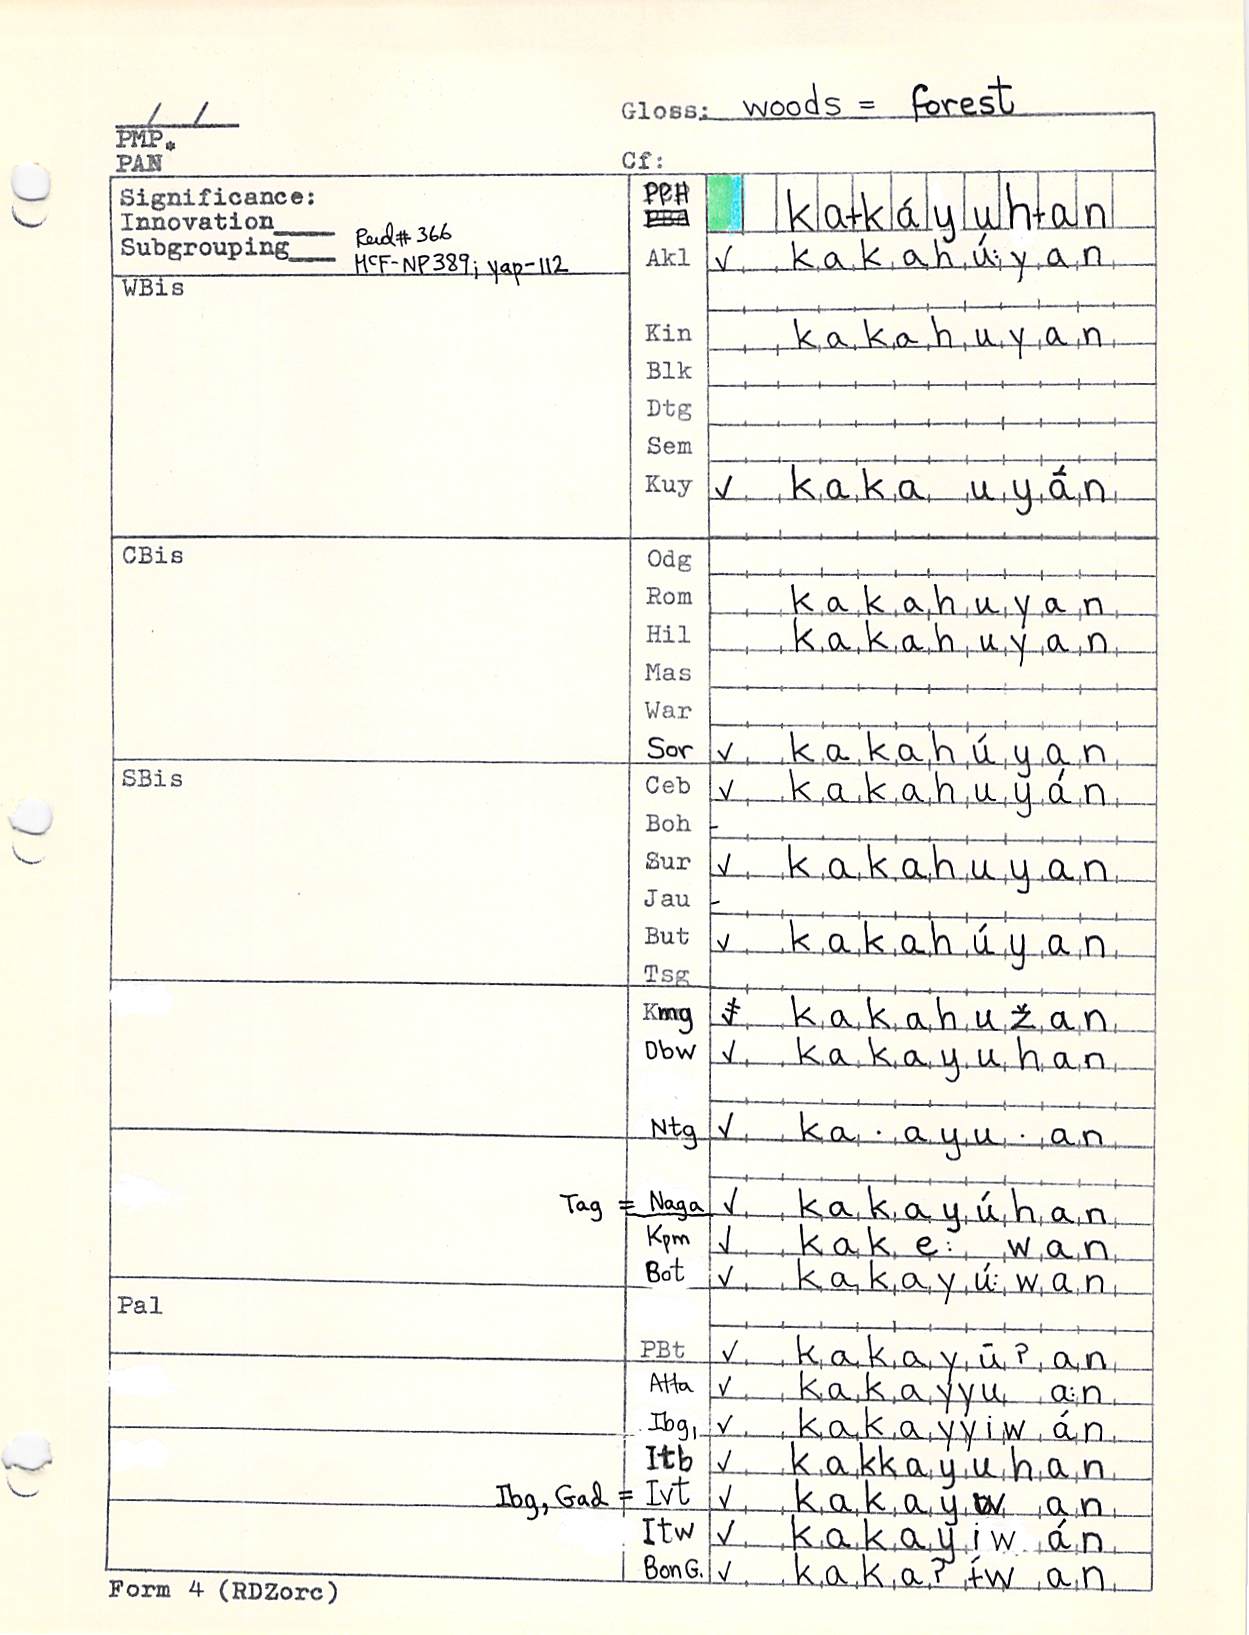 / /
Gloss: woods = forest
PMP.
PAN
Cf:
Significance:
Innovation
Subgrouping
Reid# 366
McF-NP389; yap-112
PPH ka+káyuh+an
Akl ✓ kakahú:yan
WBis
Kin kakahuyan
Blk
Dtg
Sem
Kuy ✓ kaka uyán
CBis
Odg
Rom kakahuyan
Hil kakahuyan
Mas
War
Sor ✓ kakahúyan
SBis
Ceb ✓ kakahuyán
Boh -
Sur ✓ kakahuyan
Jau -
But ✓ kakahúyan
Tsg
Kmg kakahužan
Dbw ✓ kakayuhan
Ntg ✓ ka·ayu·an
Tag = Naga ✓ kakayúhan
Kpm ✓ kake: wan
Bot ✓ kakayú:wan
Pal
PBt ✓ kakayū?an
Atta ✓ kakayyu a:n
Ibg, ✓ kakayyiw án
Itb ✓ kakkayuhan
Ibg, Gad = Ivt ✓ kakayw an
Itw ✓ kakayiw án
BonG. ✓ kaka?ɨw an
Form 4 (RDZorc)